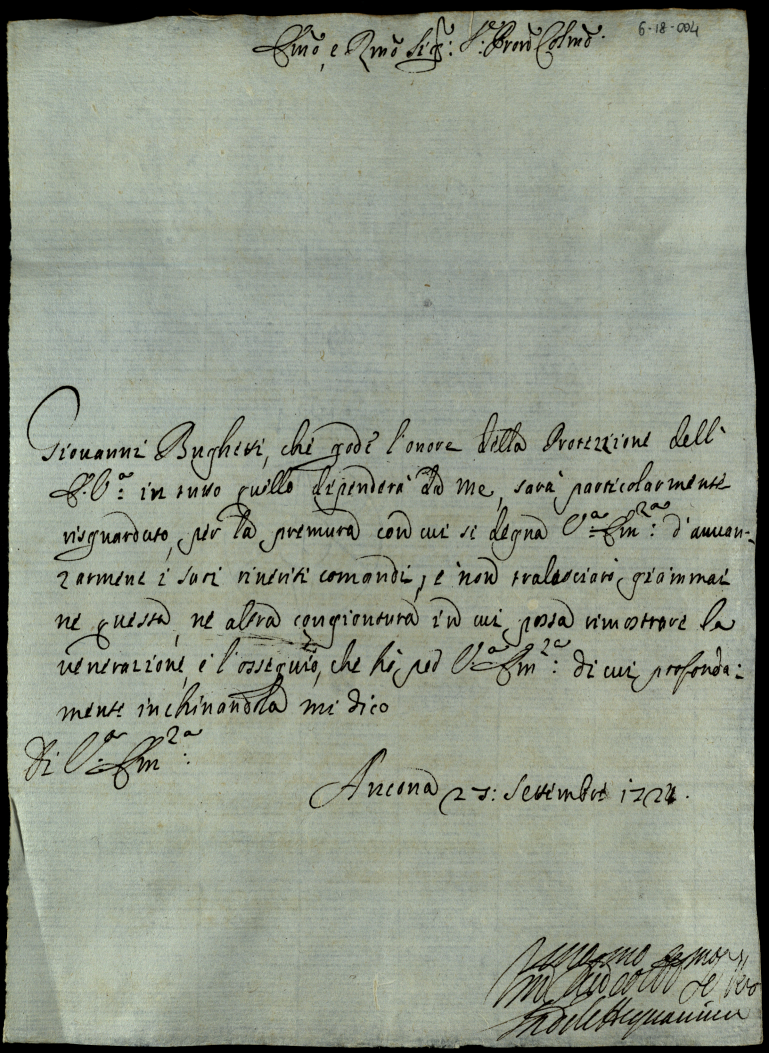 6-18-004
Emo, e Rmo Sig.r: Pron Colmo.
Giovanni Bughetti, che gode l'onore della Protezzione dell'
E. V.a: in tutto quello dipenderà da me, sarà particolarmente
risguardato, per la premura con cui si degna V.a Em.za: d'avvan-
zarmene i suoi riveriti comandi, e non tralasciarò giammai
ne questa, ne altra congiontura in cui possa rimostrare la
venerazione, e l'osseguio, che hò per V.a Em.za: di cui profonda:
mente inchinandola mi dico
Di V.a Em.za:
Ancona 23: Settembre 1724.